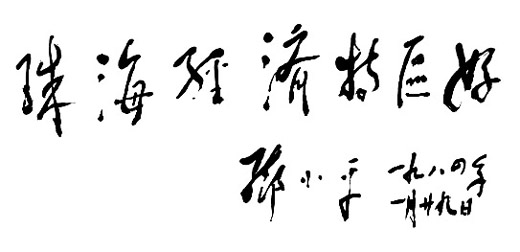 珠海經濟特區好
鄧小平 一九八四年
一月廿九日